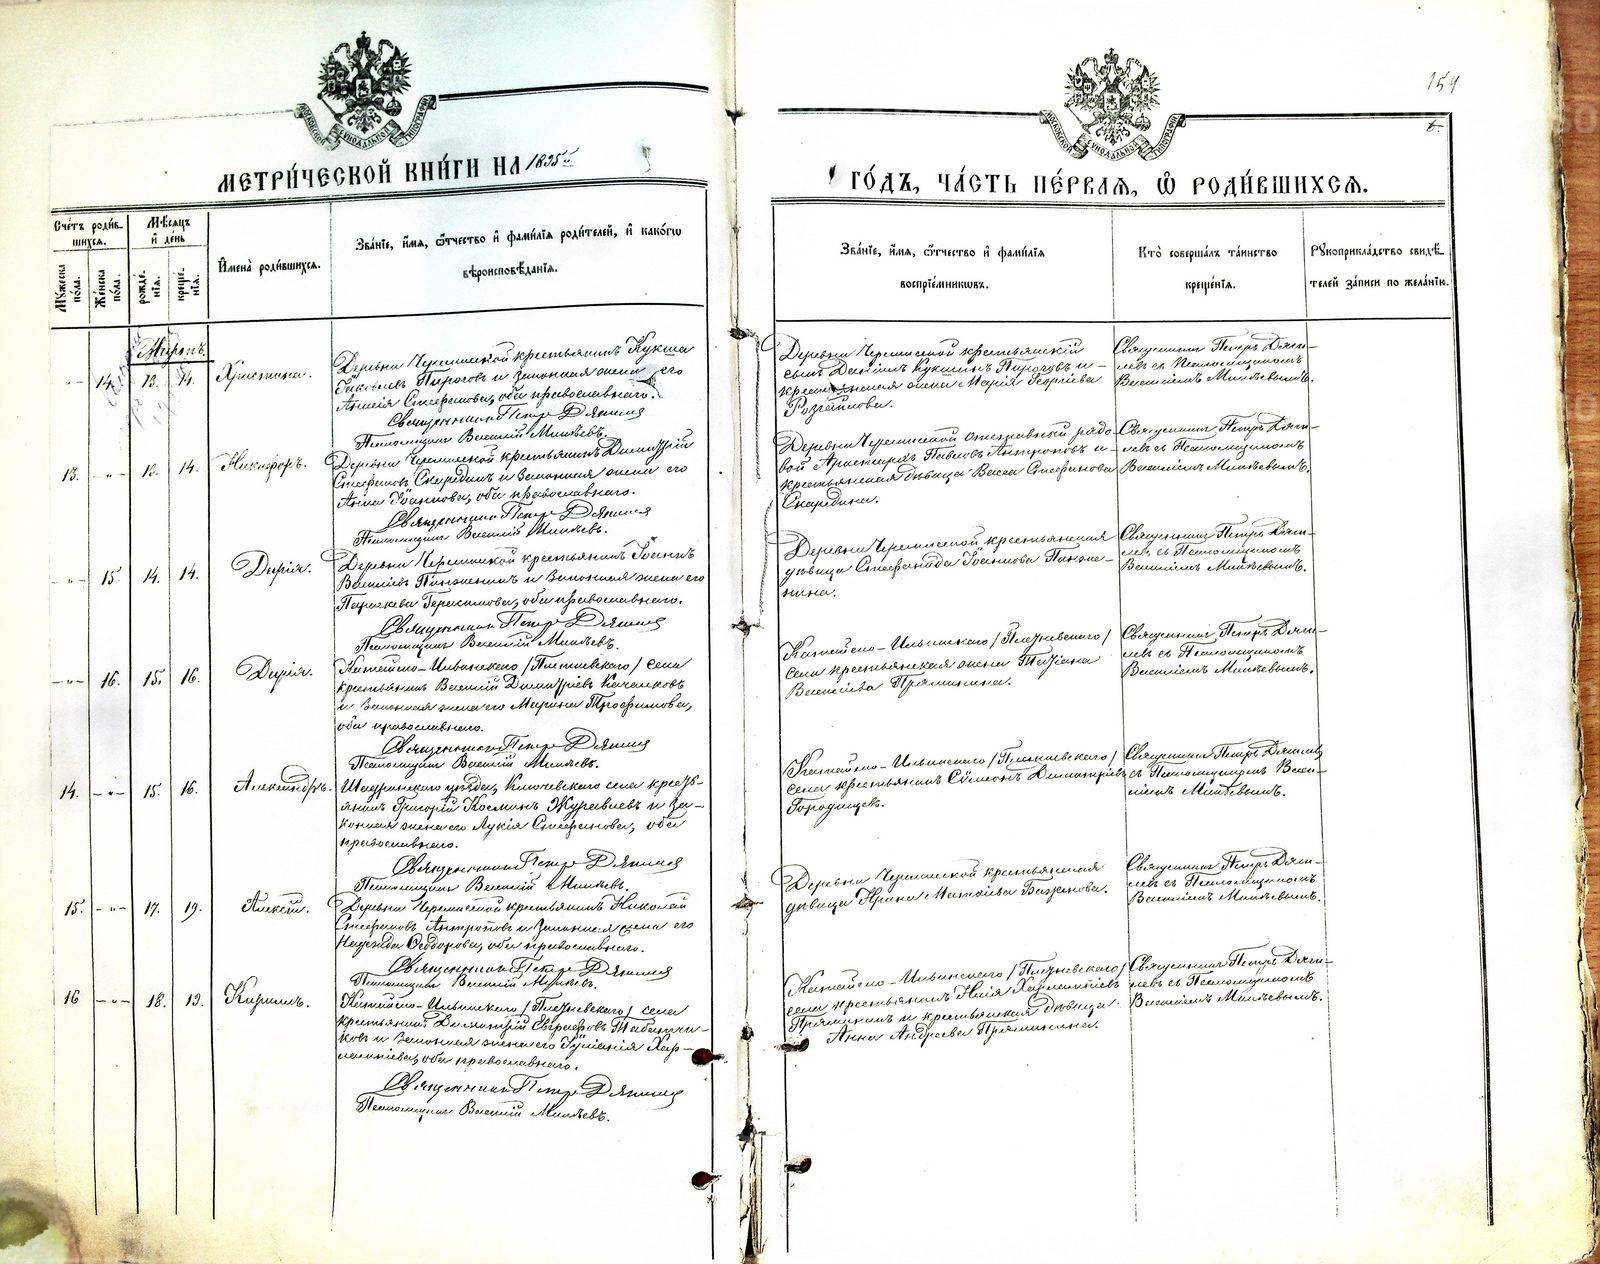 154
МОСКОВСКОЙ СѴНОДАЛЬНОЙ ТИПОГРАФІИ
МОСКОВСКОЙ СѴНОДАЛЬНОЙ ТИПОГРАФІИ
МЕТРИ́ЧЕСКОЙ КНИ́ГИ НА 1895й
ГО́ДЪ, ЧА́СТЬ ПЕ́РВАЯ, Ѽ РОДИ́ВШИХСЯ.
Сче́тъ роди́в-
шихся.
Мѣ́сяцъ
и҆ де́нь
Му́жеска по́ла.
Же́нска по́ла.
рожде́-
нія.
креще́-
нія.
И҆мена̀ роди́вшихся.
Зва́ніе, и҆́мя, ѻ҆́тчество и҆ фами́лія роди́телей, и҆ како́гѡ
вѣроисповѣ́данія.
Зва́ніе, и҆́мя, ѻ҆́тчество и҆ фами́лія
воспріе́мниковъ.
Кто̀ соверша́лъ та́инство
креще́нія.
Рукоприкла́дство свидѣ́-
телей за́писи по жела́нію.
Мартъ.
-"- 14. 13. 14. Христина.
Деревни Черемисской крестьянинъ Кукша
Іаковлевъ Пироговъ и законная жена его
Стефанова, оба православнаго.
Священникъ Петръ Дягилевъ
Псаломщикъ Василій Михѣевъ.
Деревни Черемисской крестьянскій
сынъ Даніилъ Кукшинъ Пироговъ и
крестьянская жена Марія Георгіева
Священникъ Петръ Дяги-
левъ съ Псаломщикомъ
Василіемъ Михѣевымъ.
13. -"- 12. 14. Никифоръ.
Деревни Черемисской крестьянинъ Димитрій
Стефановъ Скарединъ и законная жена его
Анна Іоаннова, оба православнаго.
Священникъ Петръ Дягилевъ
Псаломщикъ Василій Михѣевъ.
Деревни Черемисской отставной рядо-
вой Аристархъ Павловъ Антроповъ и
крестьянская дѣвица Васса Стефанова
Скаредина.
Священникъ Петръ Дяги-
левъ съ Псаломщикомъ
Василіемъ Михѣевымъ.
-"- 15. 14. 14. Дарія.
Деревни Черемисской крестьянинъ Іоаннъ
Василіевъ и законная жена его
Параскева Герасимова, оба православнаго.
Священникъ Петръ Дягилевъ
Псаломщикъ Василій Михѣевъ.
Деревни Черемисской крестьянская
дѣвица Стефанида Іоаннова
Священникъ Петръ Дяги-
левъ съ Псаломщикомъ
Василіемъ Михѣевымъ.
-"- 16. 15. 16. Дарія.
Катайско-Ильинскаго /Плетневскаго/ села
крестьянинъ Василій Димитріевъ Качалковъ
и законная жена его Марина Трофимова,
оба православнаго.
Священникъ Петръ Дягилевъ
Псаломщикъ Василій Михѣевъ.
Катайско-Ильинскаго /Плетневскаго/
села крестьянская жена Татіана
Василіева Прямикина.
Священникъ Петръ Дяги-
левъ съ Псаломщикомъ
Василіемъ Михѣевымъ.
14. -"- 15. 16. Александръ.
Шадринскаго уѣзда, Ключевскаго села кресть-
янинъ Григорій Косминъ Журавлевъ и за-
конная жена его Лукія Стефанова, оба
православнаго.
Священникъ Петръ Дягилевъ
Псаломщикъ Василій Михѣевъ.
Катайско-Ильинскаго /Плетневскаго/
села крестьянинъ Симеонъ Димитріевъ
Городищевъ.
Священникъ Петръ Дягилевъ
съ Псаломщикомъ Васи-
ліемъ Михѣевымъ.
15. -"- 17. 19. Алексій.
Деревни Черемисской крестьянинъ Николай
Стефановъ Антроповъ и законная жена его
Надежда Ѳеодорова, оба православнаго.
Священникъ Петръ Дягилевъ
Псаломщикъ Василій Михѣевъ.
Деревни Черемисской крестьянская
дѣвица Ирина Матѳіева Баженова.
Священникъ Петръ Дяги-
левъ съ Псаломщикомъ
Василіемъ Михѣевымъ.
16 -"- 18. 19. Кириллъ.
Катайско-Ильинскаго /Плетневскаго/ села
крестьянинъ Димитрій Евграфовъ Табатчи-
ковъ и законная жена его Іуліанія Хар-
лампіева, оба православнаго.
Священникъ Петръ Дягилевъ
Псаломщикъ Василій Михѣевъ.
Катайско-Ильинскаго /Плетневскаго/
села крестьянинъ Илія Харлампіевъ
Прямикинъ и крестьянская дѣвица
Анна Андреева Прямикина.
Священникъ Петръ Дяги-
левъ съ Псаломщикомъ
Василіемъ Михѣевымъ.